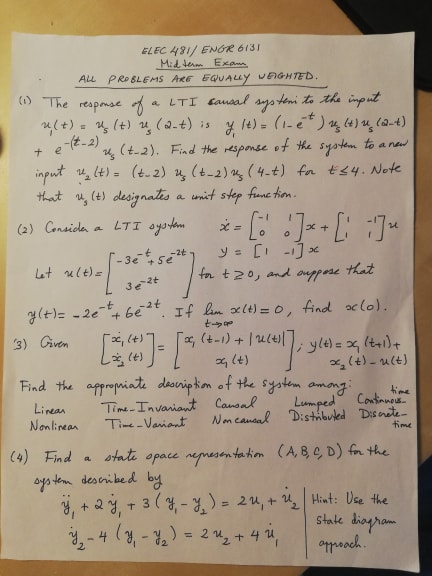 ELEC 481/ ENGR 6131
Midterm Exam
ALL PROBLEMS ARE EQUALLY WEIGHTED.
(1) The response of a LTI causal system to the input
u₁(t) = uₛ(t) uₛ(2-t) is y₁(t) = (1-e^-t) uₛ(t) uₛ(2-t)
+ e^-(t-2) uₛ(t-2). Find the response of the system to a new
input u₂(t) = (t-2) uₛ(t-2) uₛ(4-t) for t≤4. Note
that uₛ(t) designates a unit step function.
(2) Consider a LTI system ẋ = [-1 1; 0 0] x + [1 -1; 1 1] u
y = [1 -1] x
Let u(t) = [-3e^-t + 5e^-2t; 3e^-2t] for t≥0, and suppose that
y(t) = -2e^-t + 6e^-2t. If lim t→∞ x(t) = 0, find x(0).
3) Given [ẋ₁(t); ẋ₂(t)] = [x₁(t-1) + |u(t)|; x₁(t)]; y(t) = x₁(t+1) +
x₂(t) - u(t)
Find the appropriate description of the system among:
Linear Time-Invariant Causal Lumped Continuous-time
Nonlinear Time-Variant Noncausal Distributed Discrete-time
(4) Find a state space representation (A, B, C, D) for the
system described by
ÿ₁ + 2ẏ₁ + 3(y₁ - y₂) = 2u₁ + u̇₂
ÿ₂ - 4(y₁ - y₂) = 2u₂ + 4u̇₁
Hint: Use the
state diagram
approach.